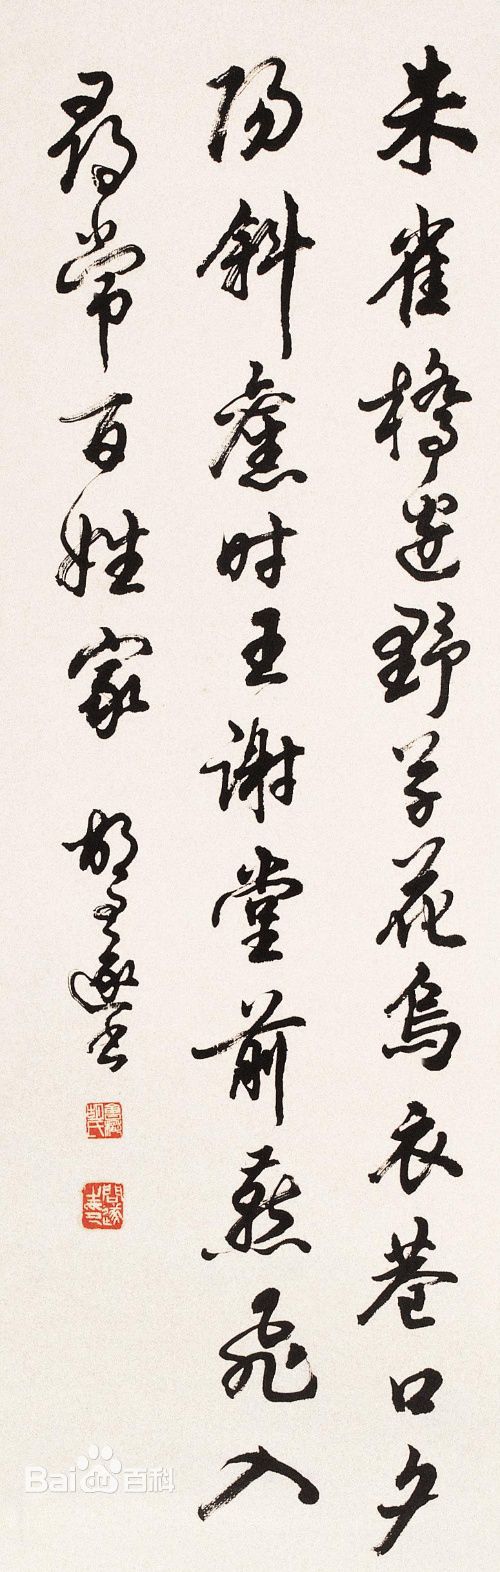 朱雀橋邊野草花烏衣巷口夕
陽斜舊时王謝堂前燕飛入
尋常百姓家 胡问遂书
Bai百科